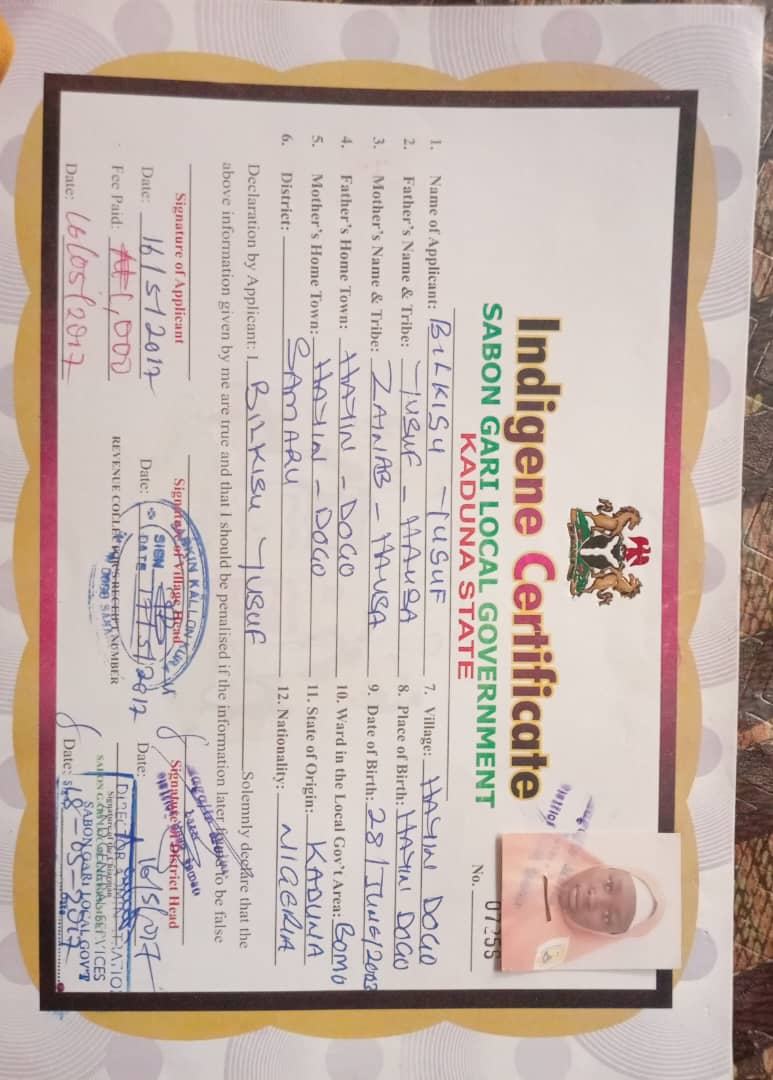 Indigene Certificate
SABON GARI LOCAL GOVERNMENT
KADUNA STATE
No. 07258
1. Name of Applicant: BILKISU YUSUF
2. Father's Name & Tribe: YUSUF - HAUSA
3. Mother's Name & Tribe: ZAINAB - HAUSA
4. Father's Home Town: HAYIN - DOGO
5. Mother's Home Town: HAYIN - DOGO
6. District: SAMARU
7. Village: HAYIN DOGO
8. Place of Birth: HAYIN DOGO
9. Date of Birth: 28/JUNE/2003
10. Ward in the Local Gov't Area: BOMO
11. State of Origin: KADUNA
12. Nationality: NIGERIA
Declaration by Applicant: I BILKISU YUSUF Solemnly declare that the
above information given by me are true and that I should be penalised if the information later found to be false
Signature of Applicant
Date: 16/5/2017
Fee Paid: ₦1,000
Date: 16/05/2017
Signature of Village Head
SIGN
DATE
Date: 17/5/2017
REVENUE COLLECTOR'S RECEIPT NUMBER
Signature of District Head
Date: 16/5/2017
SABON GARI LOCAL GOV'T
Date: 18-05-2017